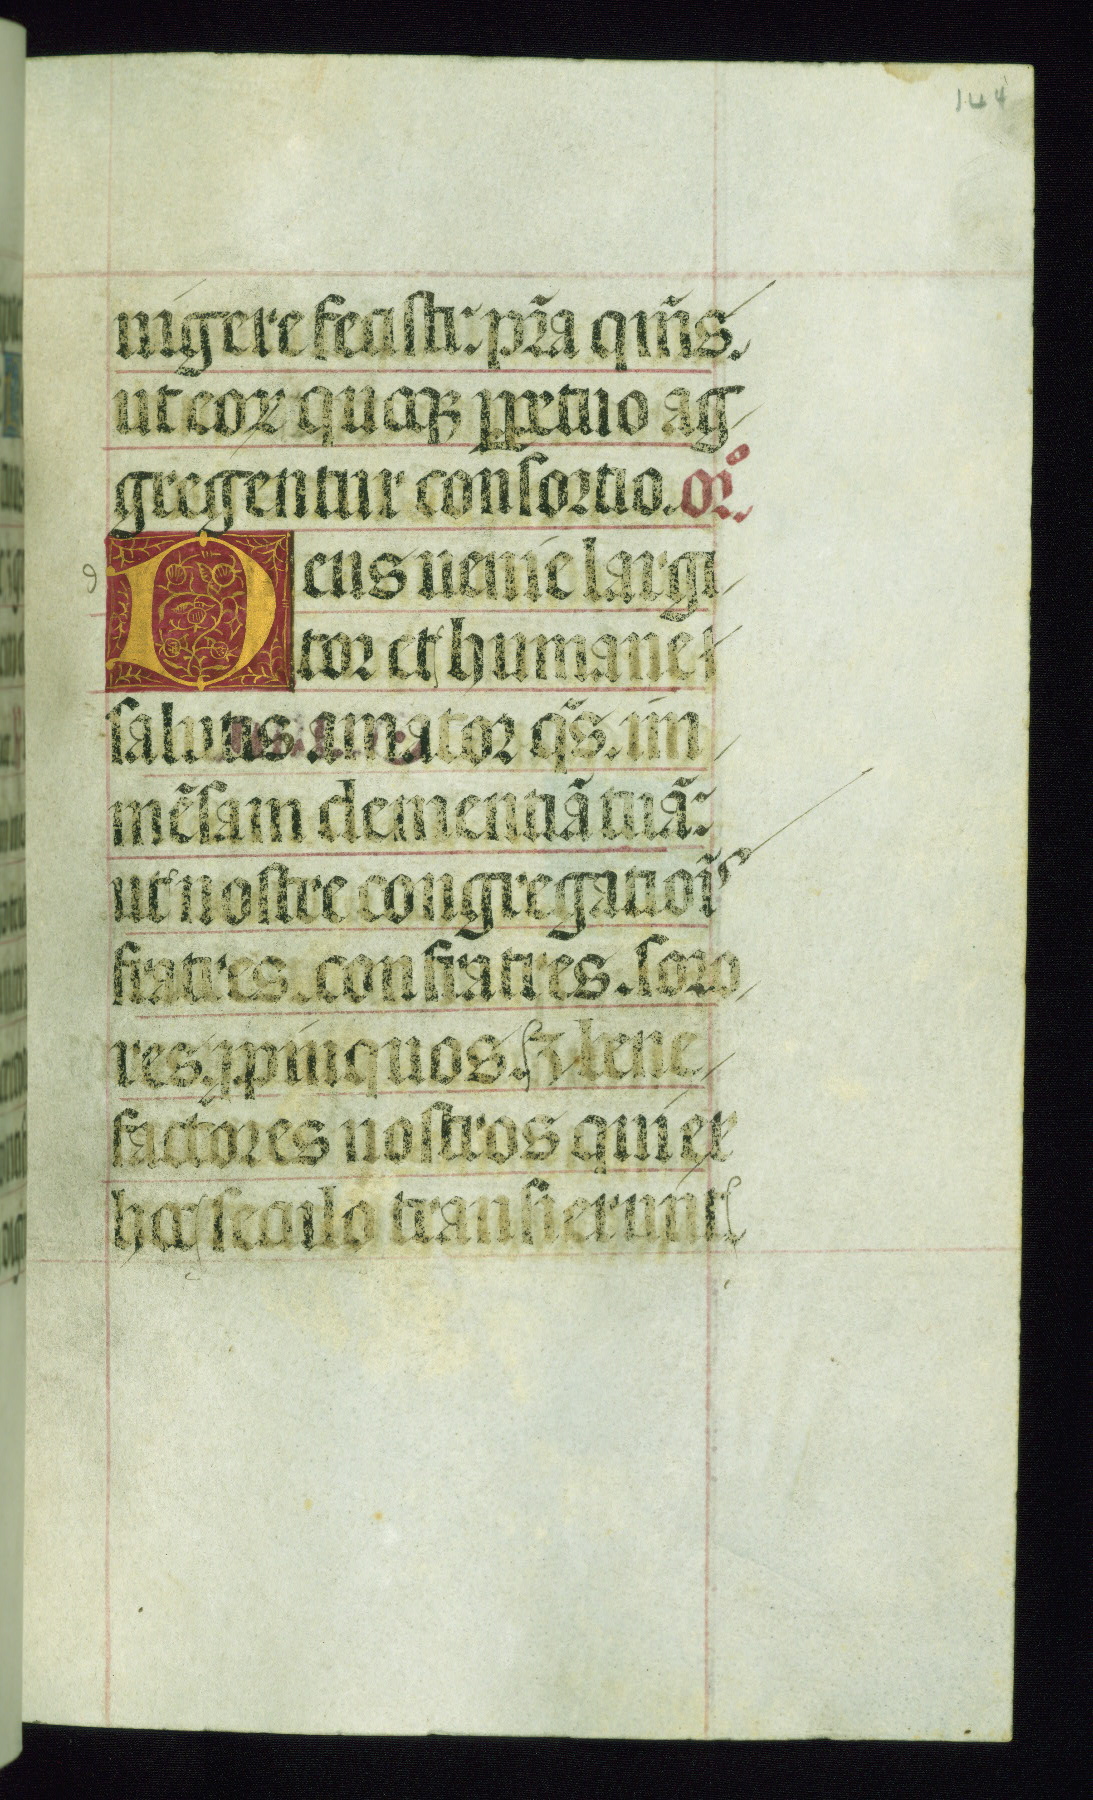 144
uigere fecisti: p̃ra qum̃s.
ut eor quoqꝫ ꝑpetuo ag
gregentur consortio. or̃.
Deus uenie largi
tor et humane
salutis amator qs̃. im
mẽsam clementiã tuã:
ut nostre congregatiois̃
fratres. confratres. soro
res. ꝓpinquos. ⁊ bene
factores nostros qui ex
hoc seculo transierunt